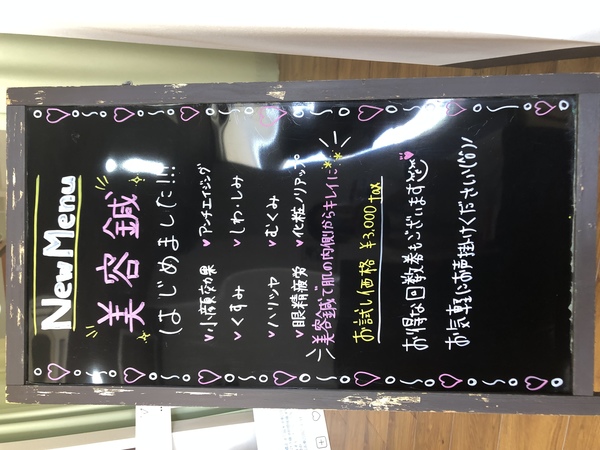 New Menu
美容鍼
はじめました!!!
♥小顔効果 ♥アンチエイジング
♥くすみ ♥しわ・しみ
♥ハリツヤ ♥むくみ
♥眼精疲労 ♥化粧ノリアップ
美容鍼で肌の内側からキレイに
お試し価格 ¥3,000 tax
お得な回数券もございます
お気軽にお声掛けください(^o^)/